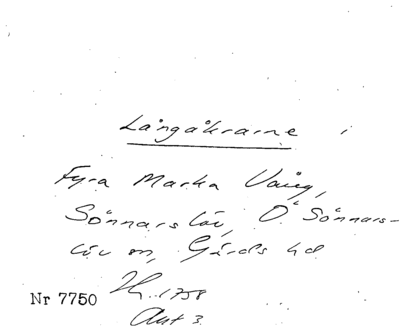 Långåkrarne i
Fyra Marka Vång,
Sönnarslöv, Ö. Sönnars-
löv sn, Gärds hd
Nr 7750 1758
Akt 3